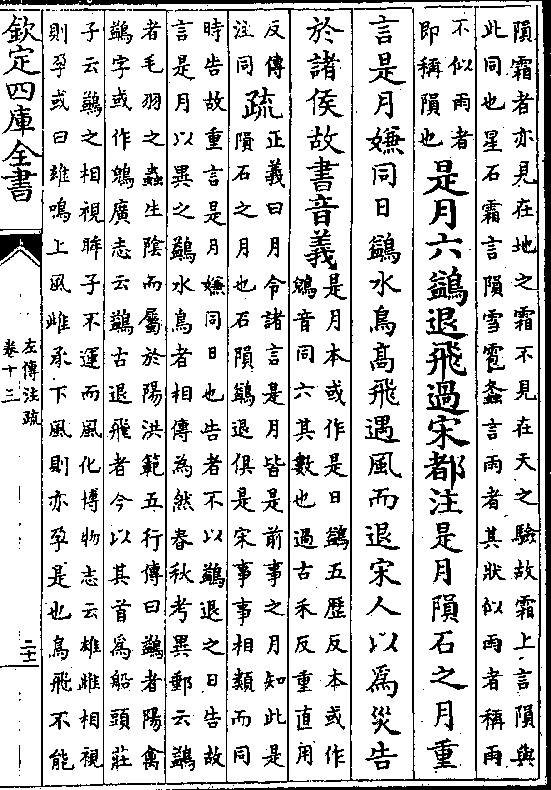 隕霜者亦見在地之霜不見在天之驗故霜上言隕與
此同也星石霜言隕雪雹螽言雨者其狀似雨者稱雨
不似雨者
即稱隕也
是月六鷁退飛過宋都注是月隕石之月重
言是月嫌同日鷁水鳥高飛遇風而退宋人以為災告
於諸侯故書音義
是月本或作是日鷁五歷反本或作
鶂音同六其數也過古禾反重直用
反傳
注同
疏
正義曰月令諸言是月皆是前事之月知此是
隕石之月也石隕鷁退俱是宋事事相類而同
時告故重言是月嫌同日也告者不以鷁退之日告故
言是月以異之鷁水鳥者相傳為然春秋考異郵云鷁
者毛羽之蟲生陰而屬於陽洪範五行傳曰鷁者陽禽
鷁字或作鶂廣志云鷁古退飛者今以其首為船頭莊
子云鷁之相視眸子不運而風化博物志云雄雌相視
則孕或曰雄鳴上風雌承下風則亦孕是也鳥飛不能
欽定四庫全書
左傳注疏
卷十三
二十二